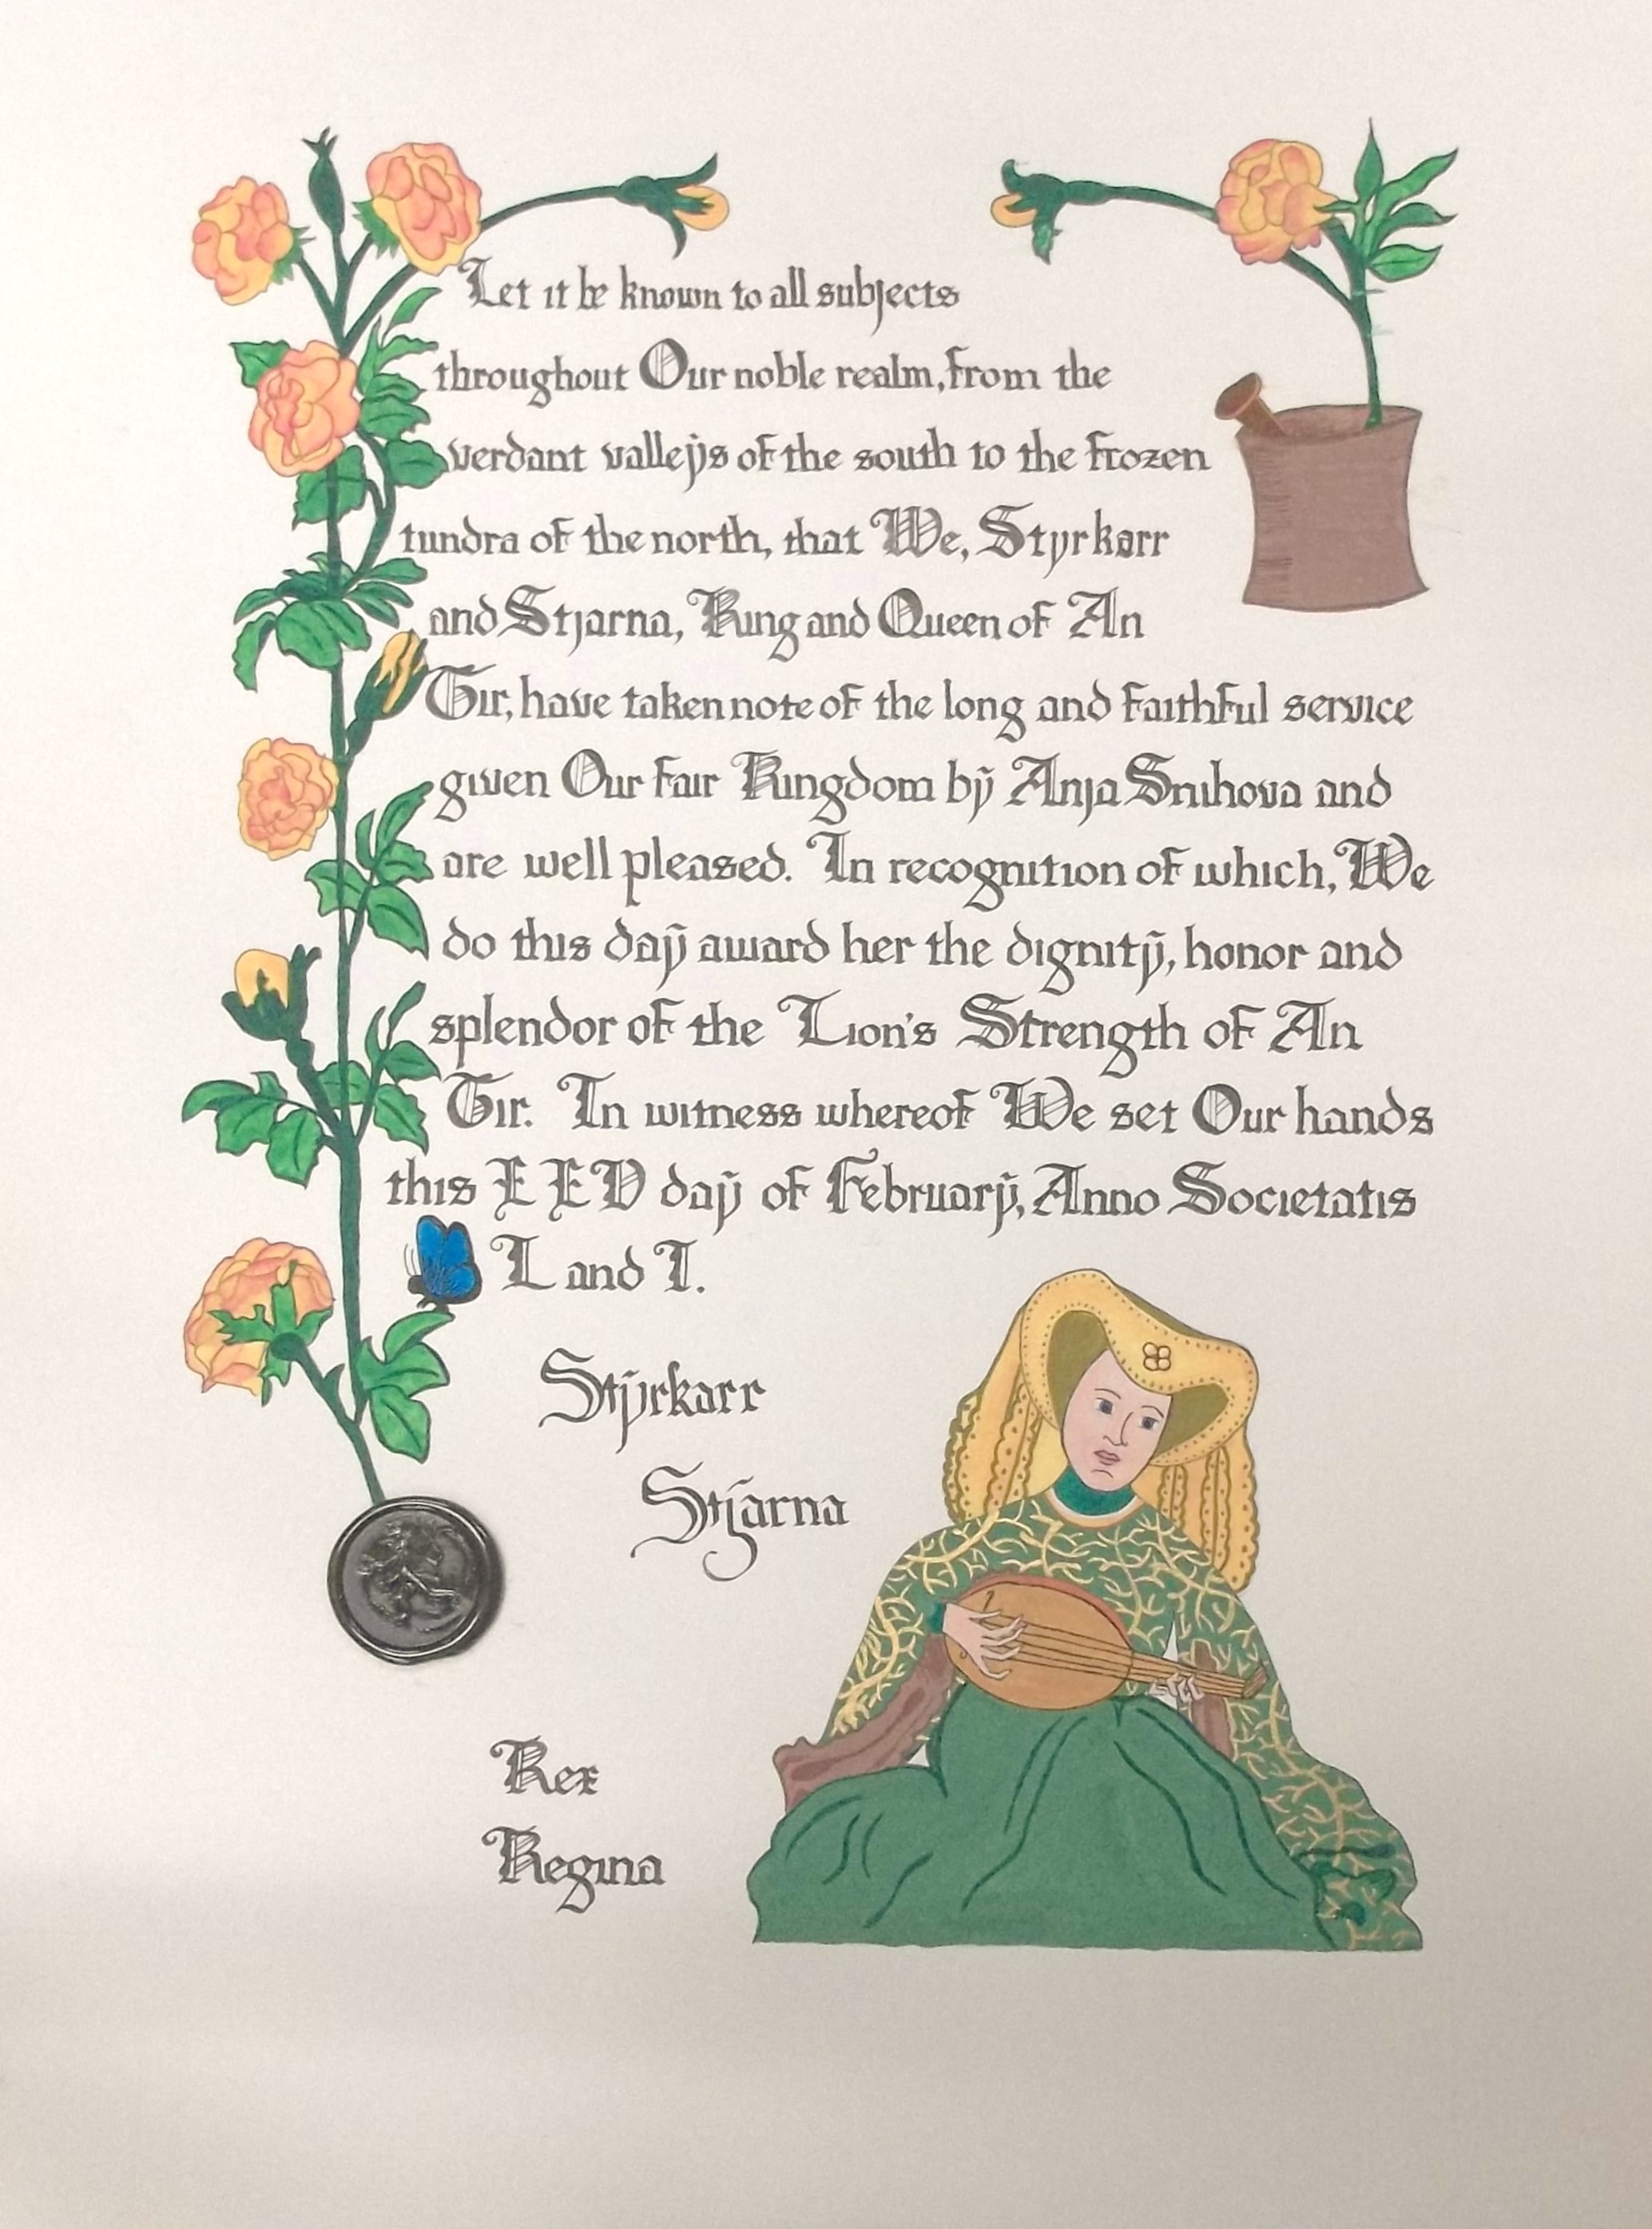 Let it be known to all subjects
throughout Our noble realm, from the
verdant valleÿs of the south to the frozen
tundra of the north, that We, Styrkarr
and Stjarna, King and Queen of An
Tir, have taken note of the long and faithful service
given Our fair Kingdom bÿ Anja Snihova and
are well pleased. In recognition of which, We
do this daÿ award her the dignitÿ, honor and
splendor of the Lion's Strength of An
Tir. In witness whereof We set Our hands
this daÿ of Februarÿ, Anno Societatis
L and I.
Stÿrkarr
Stjarna
Rex
Regina